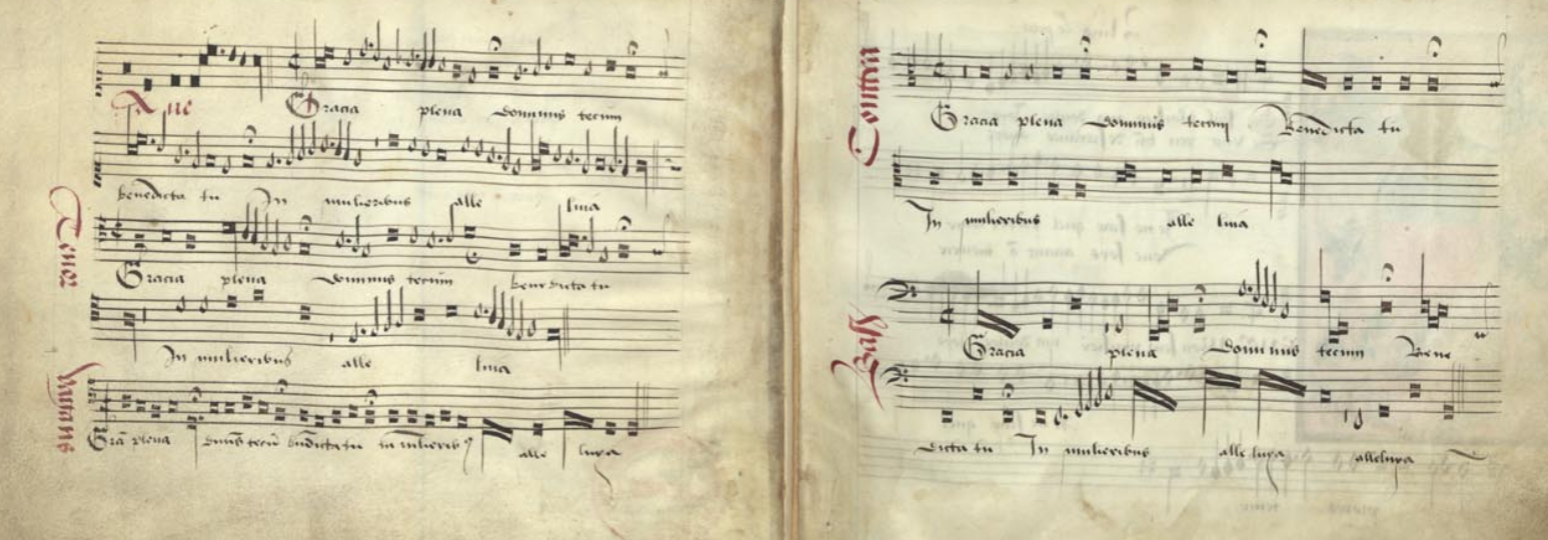 Aue Gracia plena dominus tecum
benedicta tu In mulieribus alle luia
Tenor
Gracia plena dominus tecum benedicta tu
In mulieribus alle luia
Vagans
Grā plena dn̄us tecū bn̄dicta tu in mulierib9 alle luya
Contra
Gracia plena dominus tecum Benedicta tu
In mulieribus alle luia
Bass
Gracia plena dominus tecum Bene
dicta tu In mulieribus alle luya alleluya